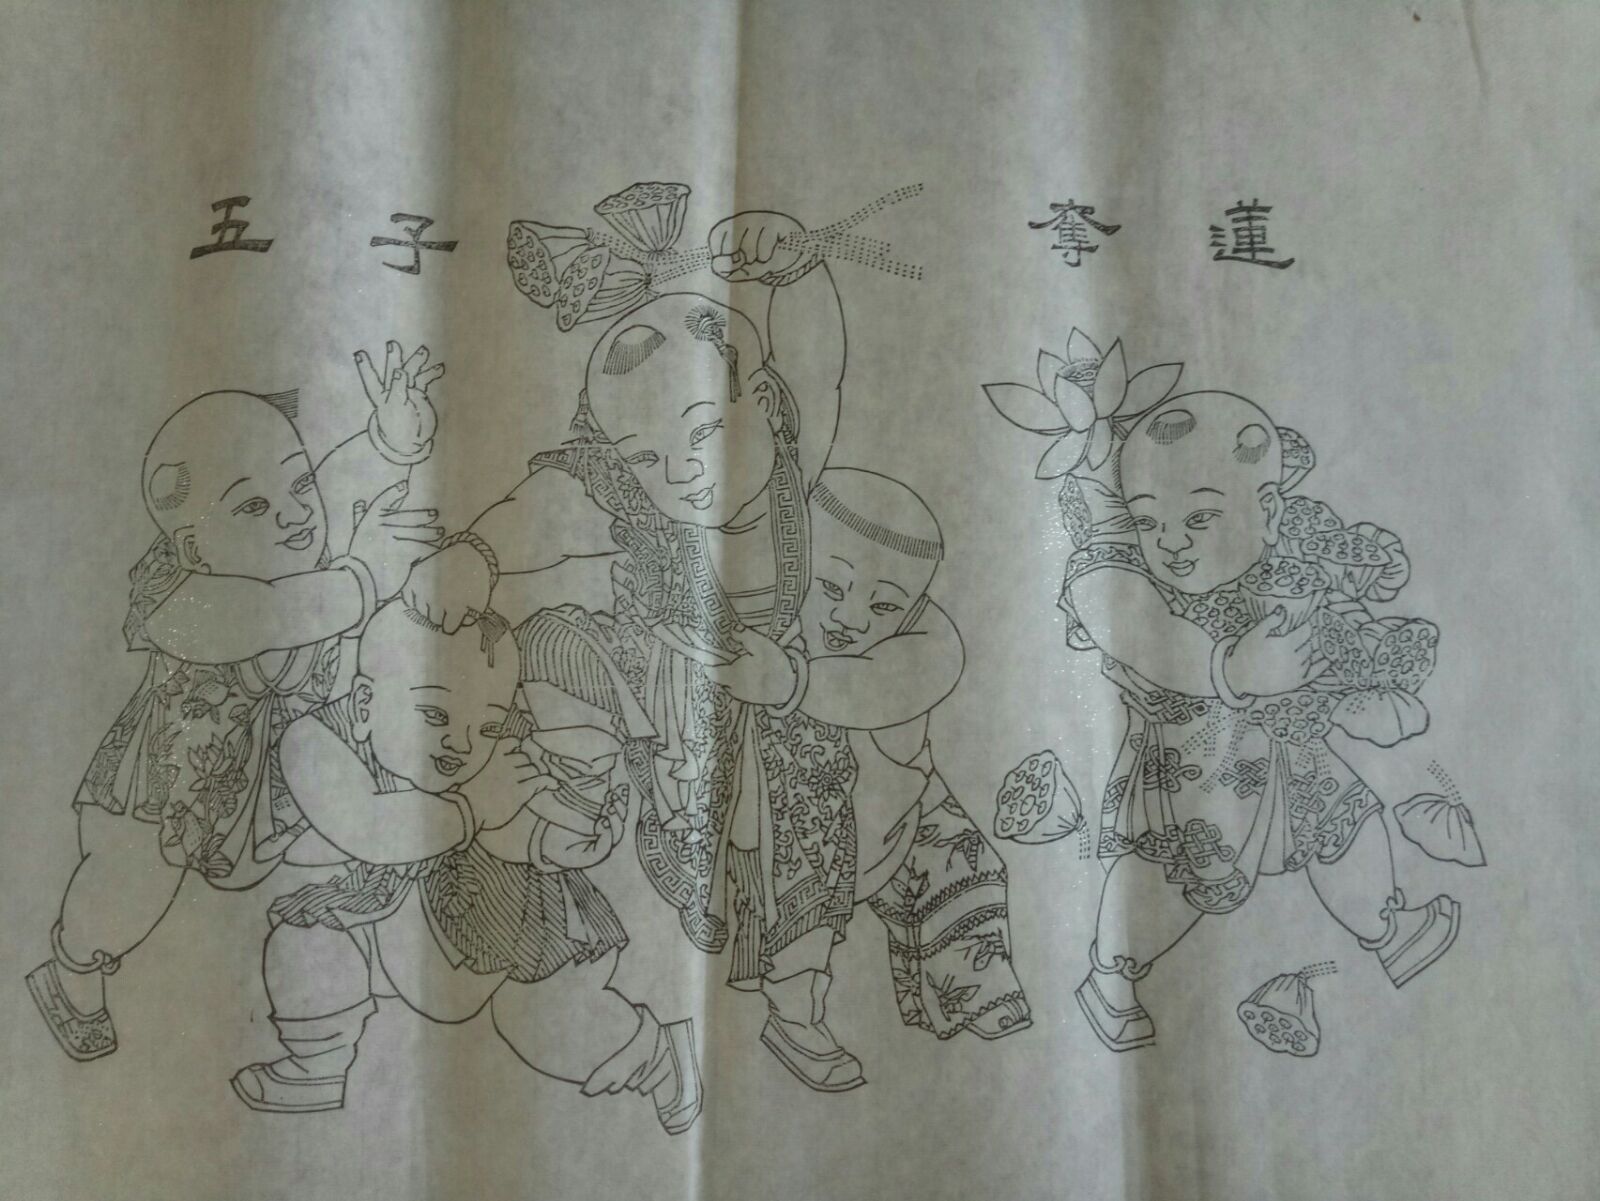 五子奪蓮